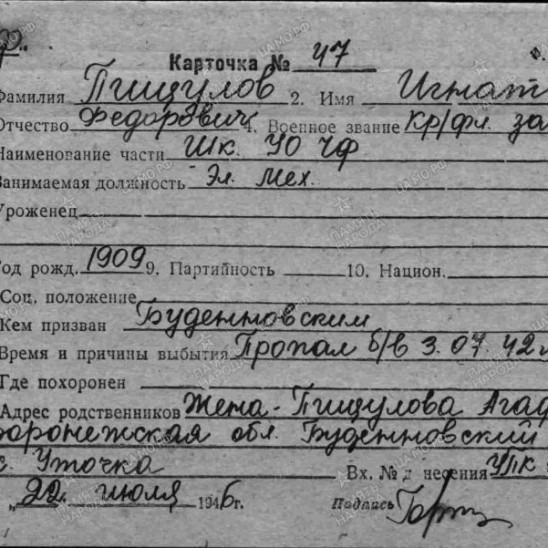 Карточка № 47
Фамилия Пищулов 2. Имя Игнат
Отчество Федорович 4. Военное звание кр/фл. за
Наименование части Шк. УО ЧФ
Занимаемая должность Эл. мех.
Уроженец
Год рожд. 1909 9. Партийность 10. Национ.
Соц. положение
Кем призван Буденновским
Время и причины выбытия Пропал б/в 3.07.42
Где похоронен
Адрес родственников Жена - Пищулова Агаф
Воронежская обл. Буденновский
с. Уточка Вх. № д несения УПК
„22" июля 1946г. Подпись